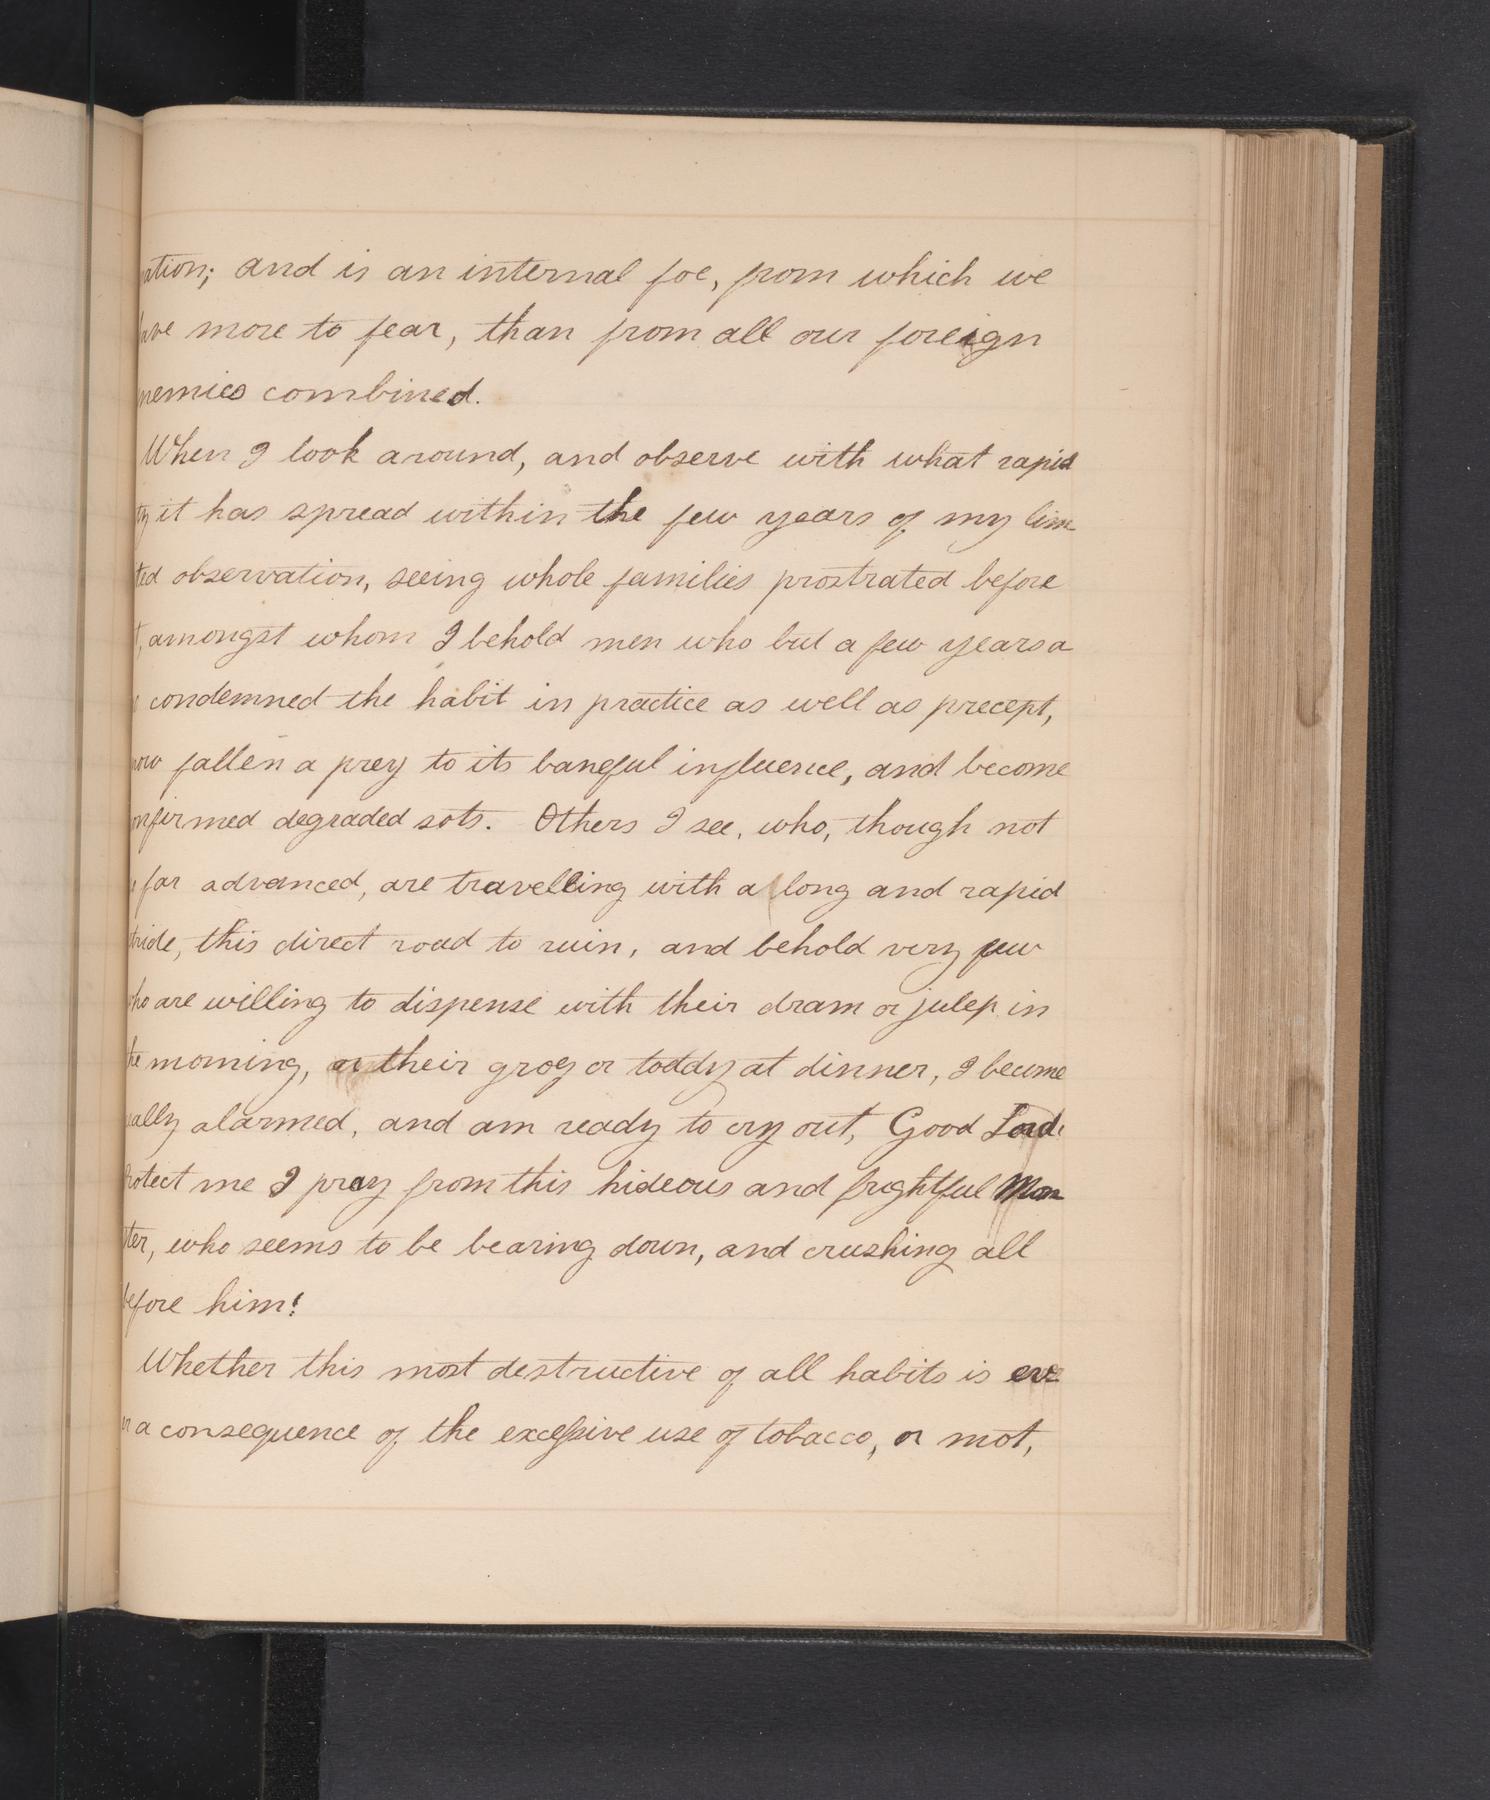 ation; and is an internal foe, from which we
have more to fear, than from all our foreign
nemies combined.
When I look around, and observe with what rapid
ty it has spread within the few years of my lim
ted observation, seeing whole families prostrated before
t, amongst whom I behold men who but a few years a
condemned the habit in practice as well as precept,
now fallen a prey to its baneful influence, and become
onfirmed degraded sots. Others I see, who, though not
far advanced, are travelling with a long and rapid
tride, this direct road to ruin, and behold very few
who are willing to dispense with their dram or julep in
the morning, or their grog or toddy at dinner, I become
eally alarmed, and am ready to cry out, Good Lord!
Protect me I pray from this hideous and frightful Mon
ster, who seems to be bearing down, and crushing all
before him!
Whether this most destructive of all habits is eve
r a consequence of the excessive use of tobacco, or not,